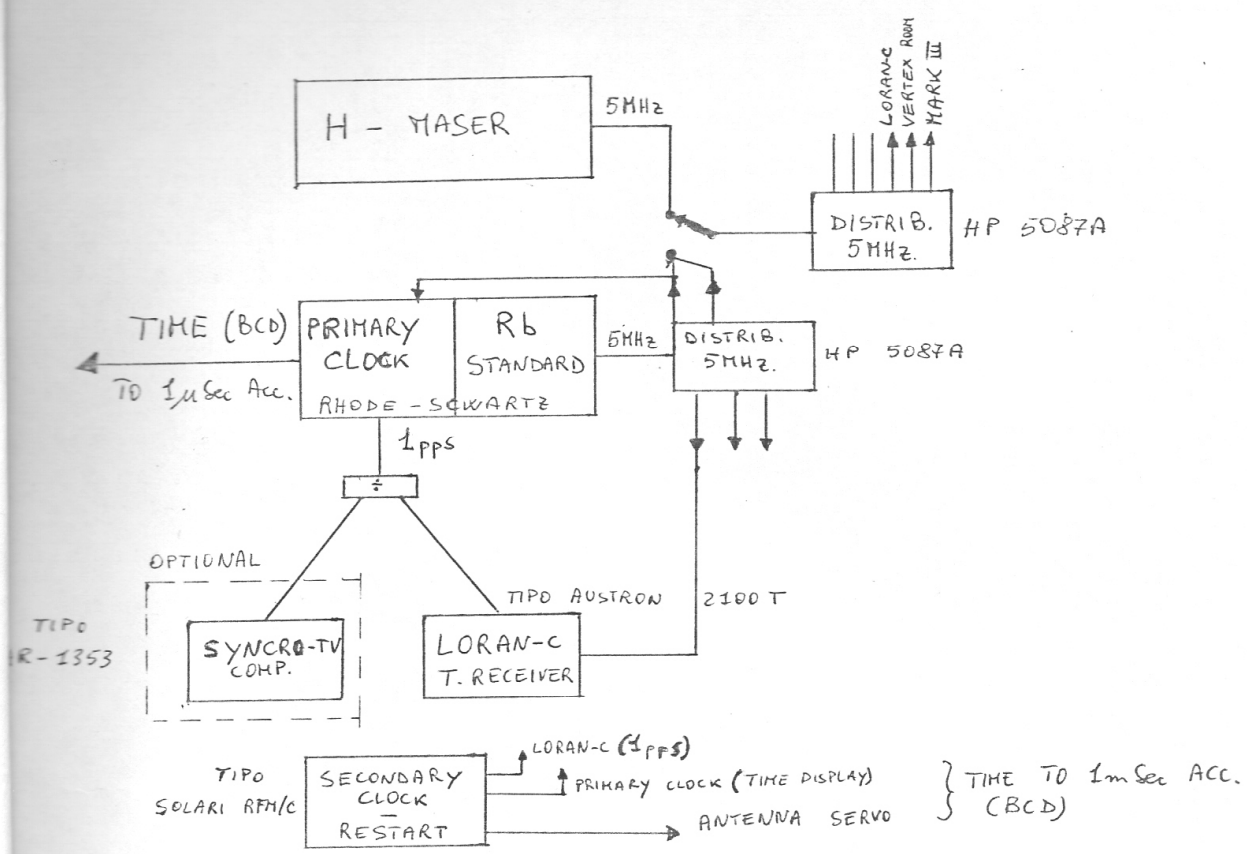 LORAN-C
VERTEX ROOM
MARK III
5MHz
H - MASER
DISTRIB.
5MHz.
HP 5087A
TIME (BCD)
TO 1μSec Acc.
PRIMARY
CLOCK
Rb
STANDARD
RHODE - SCWARTZ
5MHz
DISTRIB.
5MHz.
HP 5087A
1pps
÷
OPTIONAL
TIPO AUSTRON 2100 T
TIPO
R-1353
SYNCRO-TV
COMP.
LORAN-C
T. RECEIVER
TIPO
SOLARI RFM/C
SECONDARY
CLOCK
-
RESTART
LORAN-C (1pps)
PRIMARY CLOCK (TIME DISPLAY)
ANTENNA SERVO
TIME TO 1mSec ACC.
(BCD)